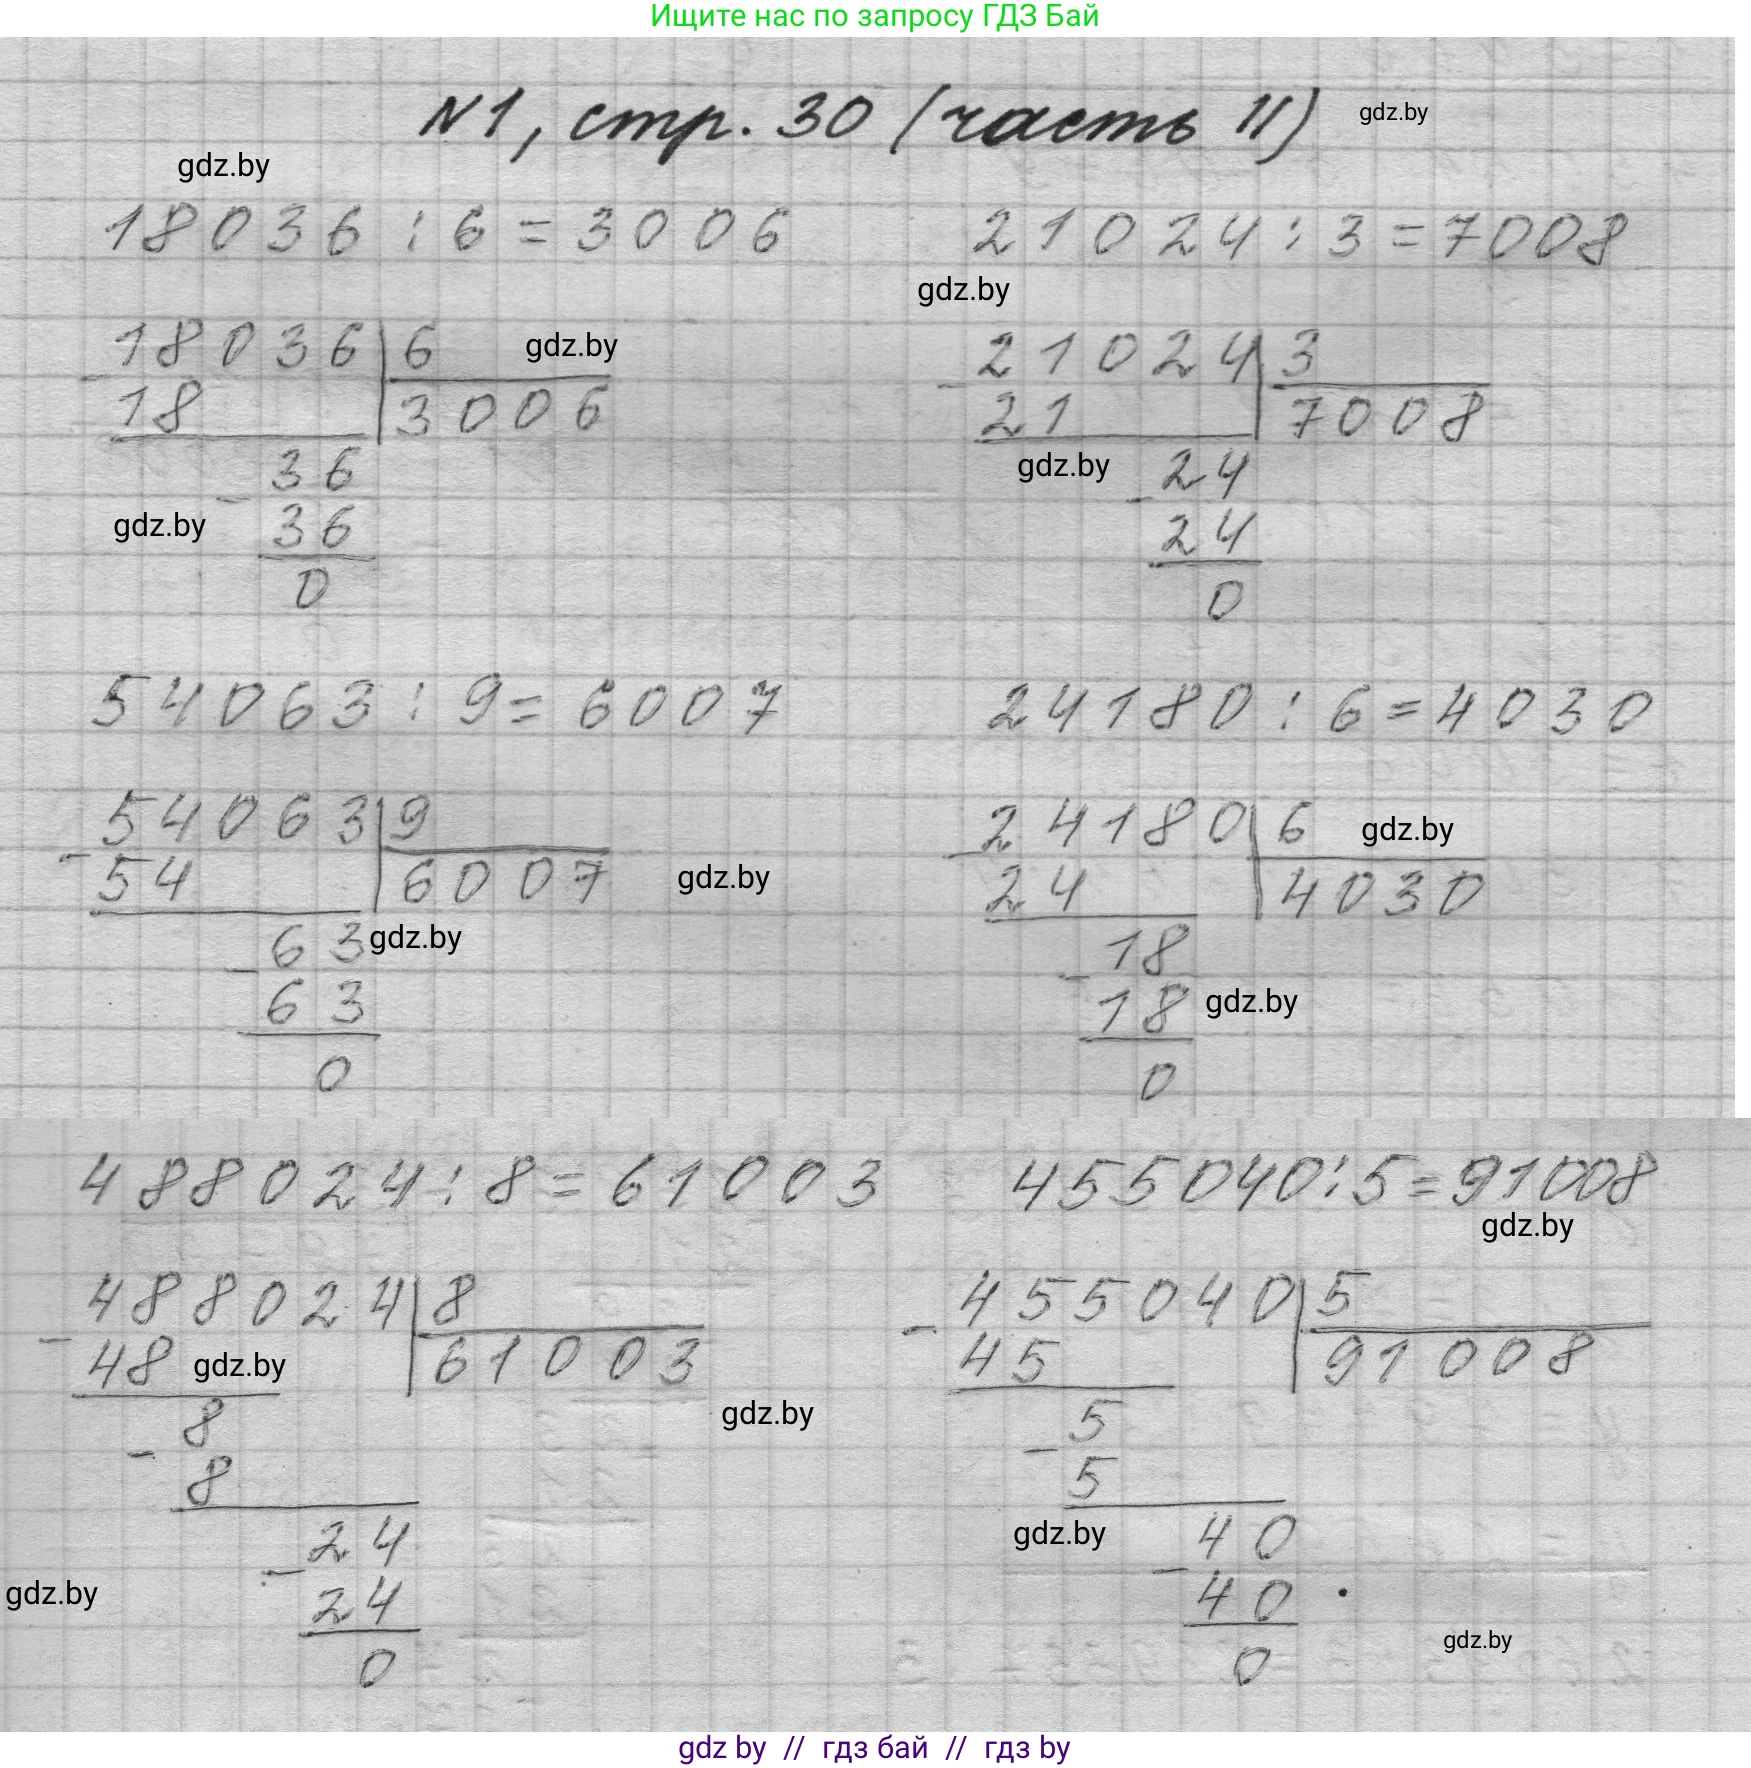 Ищите нас по запросу ГДЗ Бай
N1, стр. 30 (часть II) gdz.by
gdz.by
18036 : 6 = 3006
21024 : 3 = 7008
gdz.by
18036 6 gdz.by
- 18 3006
36
- 36
gdz.by
0
21024 3
- 21 7008
gdz.by 24
- 24
0
54063 : 9 = 6007
24180 : 6 = 4030
54063 9
- 54 6007 gdz.by
63 gdz.by
- 63
0
24180 6 gdz.by
- 24 4030
18
- 18 gdz.by
0
488024 : 8 = 61003
455040 : 5 = 91008
gdz.by
488024 8
- 48 gdz.by 61003
8 gdz.by
- 8
24
- 24
gdz.by
0
455040 5
- 45 91008
5
- 5
gdz.by 40
- 40
gdz.by
0
gdz by // гдз бай // гдз by